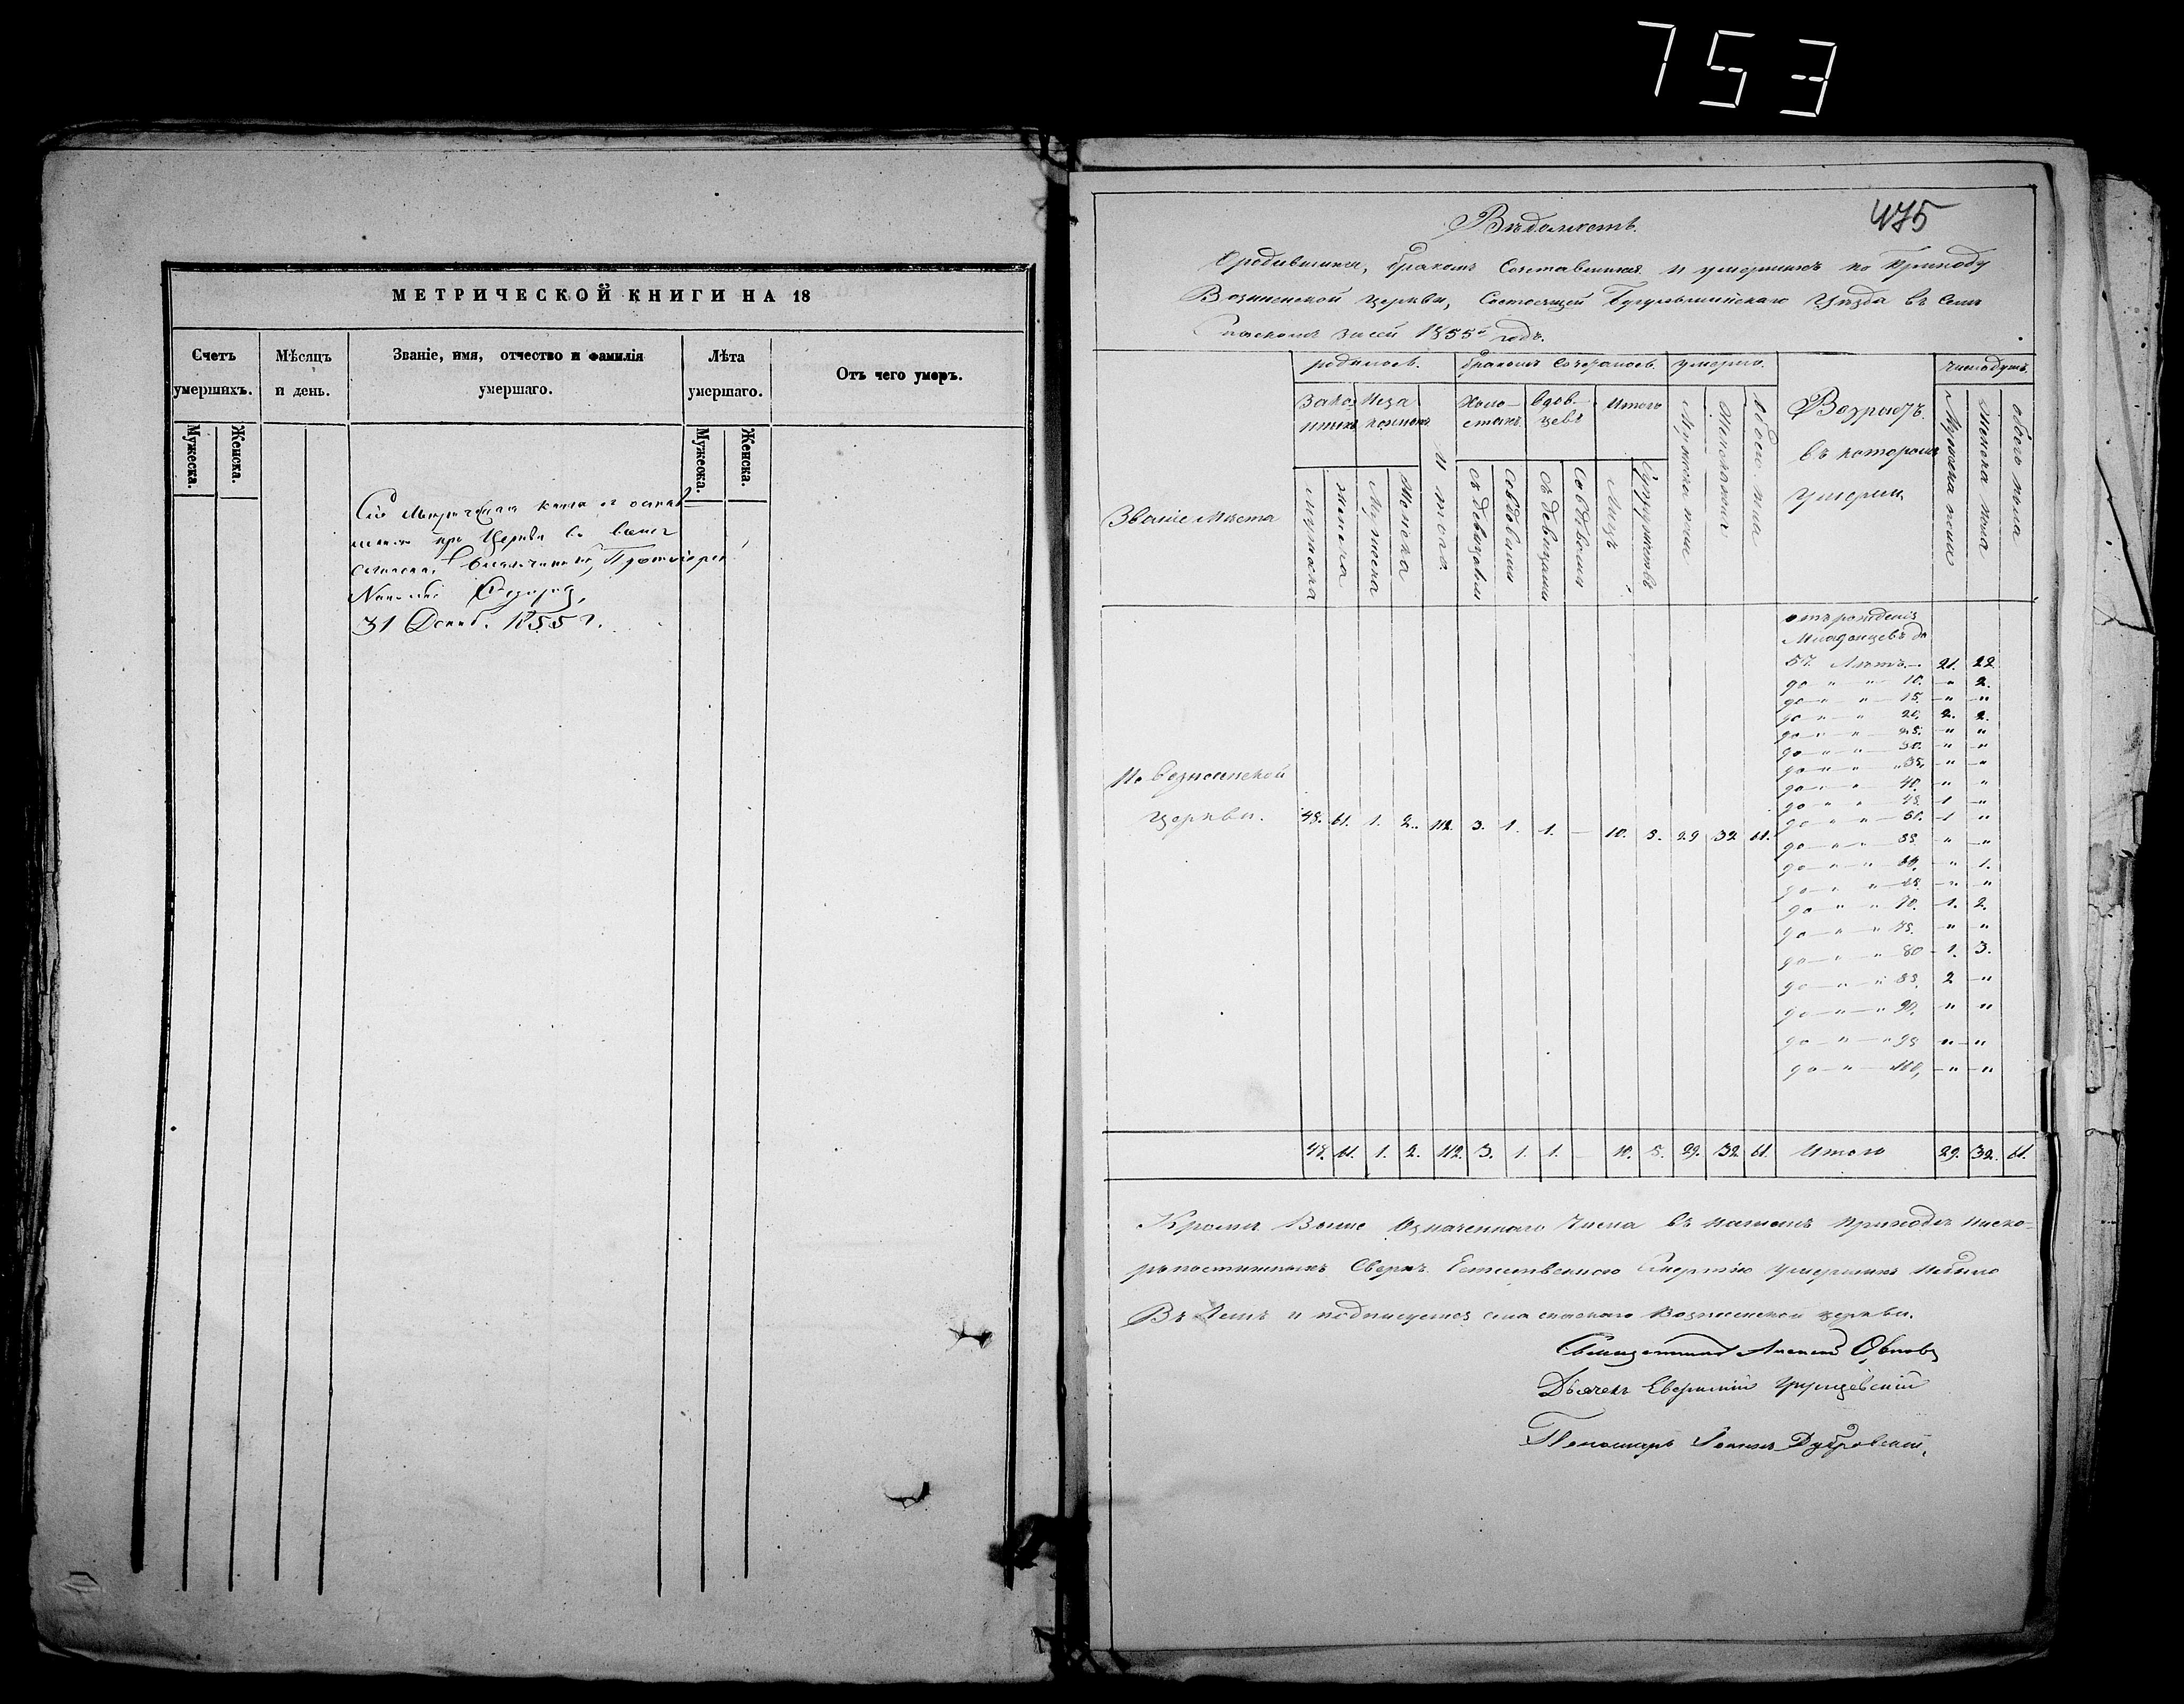 753
МЕТРИЧЕСКОЙ КНИГИ НА 18
Счетъ умершихъ.
Мѣсяцъ и день.
Званіе, имя, отчество и фамилія умершаго.
Лѣта умершаго.
Отъ чего умеръ.
Мужеска.
Женска.
Мужеска.
Женска.
Сія Метрическая книга
при Церкви
31 Декаб. 1855 г.
475
Вѣдомость
О родившихся, бракомъ сочетавшихся и умершихъ по приходу
Вознесенской церкви, Состоящей Бугульминскаго Уѣзда въ Селѣ
Спаскомъ за сей 1855й годъ.
Званіе мѣста
родилось.
бракомъ сочеталось.
умерло.
Возрастъ
въ которомъ
Умерли
число душъ
Закон-
ныхъ
Неза
конныхъ
Холо-
стыхъ
вдов-
цевъ
Итого
Мужеска
Женска
Мужеска
Женска
Итого
съ девицами
Со вдовами
съ девицами
Со вдовами
Лицъ
Супружествъ
Мужеска пола
Женска пола
обоего пола
Мужеска пола
Женска пола
обоего пола
отъ рожденія
Младенцевъ до
5ти Лѣтъ. 21. 22.
до " " 10. " 2.
до " " 15. " "
до " " 20. 2. 2.
до " " 25. " "
до " " 30. " "
до " " 35. " "
до " " 40. " "
до " " 45. 1 "
до " " 50. 1 "
до " " 55. " "
до " " 60. " 1.
до " " 65. " "
до " " 70. 1. 2.
до " " 75. " "
до " " 80 1. 3.
до " " 85. 2 "
до " " 90. " "
до " " 95 " "
до " 100. " "
По Вознесенской
церкви. 48. 61. 1. 2. 112. 3. 1. 1. — 10. 5. 29 32 61.
48. 61. 1. 2. 112. 3. 1. 1. — 10. 5. 29. 32 61. Итого 29. 32. 61.
Кромѣ Выше Означеннаго Числа въ нашемъ приходѣ Ско-
ропостижныхъ Сверхъ Естественною Смертію умершихъ небыло
Въ чемъ и подписуемся села спаскаго Вознесенской церкви.
Священникъ Алексій
Дьячекъ
Пономарь Дубровскій.